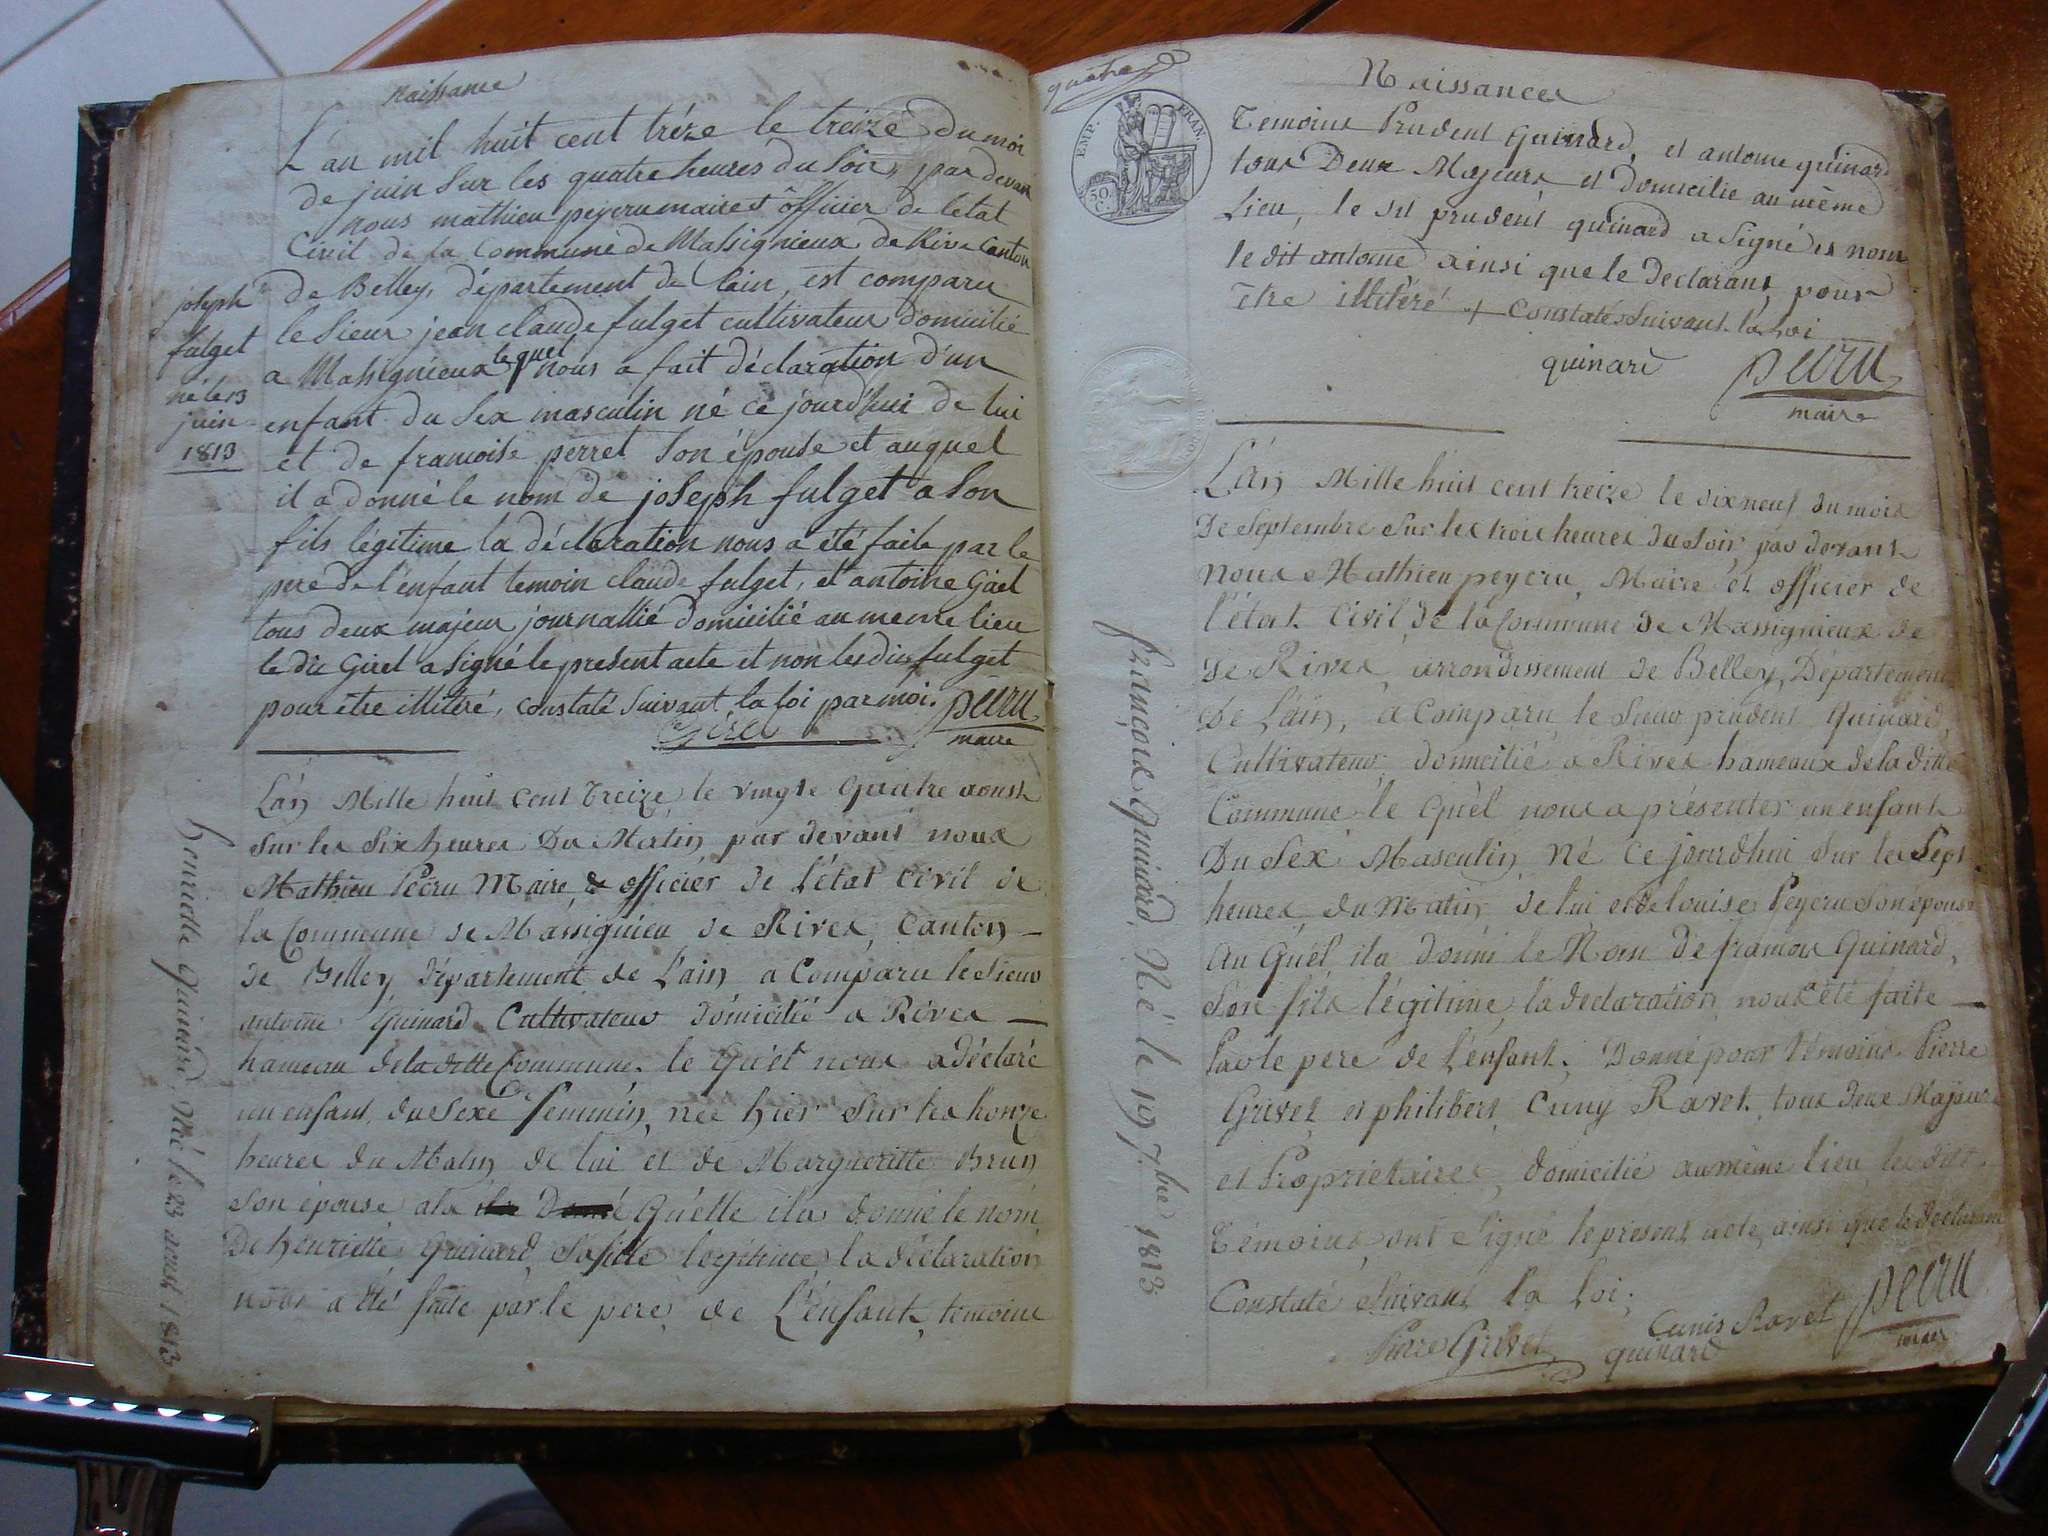 Naissance
L'an mil huit cent tréze le treize du moi
de juin sur les quatre heures du soir, par devan
nous mathieu peycru maire et officier de letat
Civil de la Commune de Massignieux de Rive Canton
de Belley, département de l'ain, est comparu
le sieur jean claude fulget cultivateur domicilié
a Massignieux lequel nous a fait déclaration d'un
enfant du sex masculin né ce jourd'hui de lui
et de francoise perret son épouse et auquel
il a donné le nom de joseph fulget a son
fils légitime la déclaration nous a été faite par le
pere de l'enfant temoin claude fulget, et antoine Girel
tous deux majeur journallié domicilié au meme lieu
le dit Girel a signé le present acte et non les dits fulget
pour être illitéré, constaté suivant la loi par moi.
Girel
pecru
maire
joseph
fulget
né le 13
juin
1813
L'an Mille huit cent treize le vingt quatre aoust
sur les six heures Du Matin par devant nous
Mathieu Pecru Maire, & officier de l'état civil de
la Commune de Massignieu de Rives, Canton
de Billey, département de L'ain a Comparu le sieur
antoine Guinard Cultivateur domicilié a Rives
hameau de la ditte Commune. le Quel nous a déclaré
un enfant, du sexe femmin, née hier sur les honze
heures du Matin de lui et de Margueritte Brun
son épouse a la Quélle il a donné le nom
De henriette Guinard, sa fille legitime, la déclaration
nous a été faite par le pere, de L'énfant, temoins
henriette Guinard, Née le 23 aoust 1813
quatre
EMP. FRAN
50 C.
Naissances
Temoins Prudent Guinard, et antoine quinard
tous Deux Majeurs et domicilie au même
Lieu, le dit prudent quinard a signé et nom
le dit antoine, ainsi que le declarant, pour
etre illitéré + Constaté suivant la loi
quinard
pecru
maire
L'an Mille huit cent treize le dixneuf du mois
De septembre sur les trois heures du soir, par devant
Nous Mathieu peycru, Maire et officier de
l'état Civil, de la Commune de Massignieux de
de Rives, arrondissement de Belley, Département
De L'ain, a Comparu le sieur prudent Guinard,
Cultivateur, domicilié a Rives hameaux de la ditte
Commune le Quél nous a présenter un enfant
Du Sex Masculin Né ce jourdhui sur les Sept
heures du Matin de lui et de louise Peycru son épouse
Au Quél il a donné le Nom de francois Guinard,
Son fils légitime, la declaration nous a été faite
Par le pere de L'énfant. Donné pour témoins Pierre
Grivet et philibert Cuny Ravet. tous deux Majeurs
et Propriétaires, domicilié au même lieu, les dits
témoins ont signé le present acte, ainsi que le declarant
Constaté suivant la loi.
Pierre Grivet
Cunis Ravet
quinard
pecru
maire
francois Guinard, Né le 19 7.bre 1813